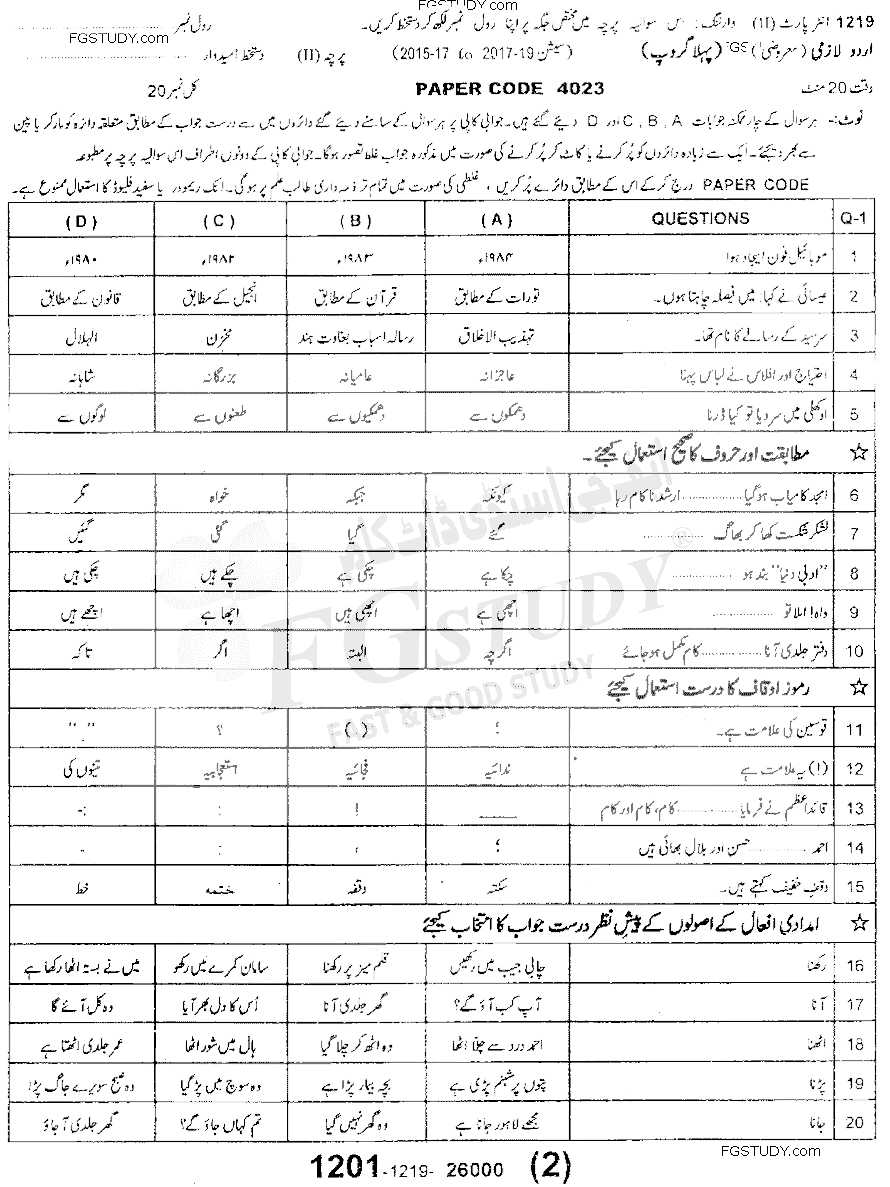 FGSTUDY.com
1219 انٹر پارٹ (II) وارننگ: اس سوالیہ پرچہ میں مختص جگہ پر اپنا رول نمبر لکھ کر دستخط کریں۔ رول نمبر
FGSTUDY.com
اردو لازمی (معروضی) FGS (پہلا گروپ) (سیشن 2017-19 to 2015-17) پرچہ (II) دستخط امیدوار
وقت 20 منٹ PAPER CODE 4023 کل نمبر 20
نوٹ:- ہر سوال کے چار ممکنہ جوابات A , B , C اور D دیئے گئے ہیں۔ جوابی کاپی پر ہر سوال کے سامنے دیئے گئے دائروں میں سے درست جواب کے مطابق متعلقہ دائرہ کو مارکر یا پین
سے بھر دیجئے۔ ایک سے زیادہ دائروں کو پُر کرنے یا کاٹ کر پُر کرنے کی صورت میں مذکورہ جواب غلط تصور ہوگا۔ جوابی کاپی کے دونوں اطراف اس سوالیہ پرچہ پر مطبوعہ
PAPER CODE درج کرکے اس کے مطابق دائرے پُر کریں ، غلطی کی صورت میں تمام تر ذمہ داری طالب علم پر ہوگی۔ انک ریموور یا سفید فلیوڈ کا استعمال ممنوع ہے۔
Q-1 QUESTIONS (A) (B) (C) (D)
1 موبائیل فون ایجاد ہوا ۱۹۸۴ء ۱۹۸۳ء ۱۹۸۲ء ۱۹۸۰ء
2 عیسائی نے کہا: میں فیصلہ چاہتا ہوں۔ تورات کے مطابق قرآن کے مطابق انجیل کے مطابق قانون کے مطابق
3 سرسید کے رسالے کا نام تھا۔ تہذیب الاخلاق رسالہ اسباب بغاوت ہند مخزن الہلال
4 احتیاج اور افلاس نے لباس پہنا عاجزانہ عامیانہ بزرگانہ شاہانہ
5 اوکھلی میں سر دیا تو کیا ڈرنا دھمکوں سے دھمکیوں سے طعنوں سے لوگوں سے
☆ مطابقت اور حروف کا صحیح استعمال کیجئے۔
6 امجد کامیاب ہوگیا ............ ارشد ناکام رہا کیونکہ جبکہ خواہ مگر
7 لشکر شکست کھا کر بھاگ ............ گئے گیا گئی گئیں
8 "ادبی دنیا" بند ہو ............ چکا ہے چکی ہے چکے ہیں چکی ہیں
9 واہ! املا تو ............ اچھی ہے اچھی ہیں اچھا ہے اچھے ہیں
10 دفتر جلدی آنا ............ کام مکمل ہو جائے اگرچہ البتہ اگر تاکہ
☆ رموز اوقاف کا درست استعمال کیجئے
11 قوسین کی علامت ہے۔ ؛ ( ) ؟ " "
12 (!) یہ علامت ہے ندائیہ فجائیہ استعجابیہ تینوں کی
13 قائداعظم نے فرمایا ............ کام، کام اور کام ___ ! : :-
14 احمد ............ حسن اور بلال بھائی ہیں ؛ ، : -
15 وقفِ خفیف کہتے ہیں۔ سکتہ وقفہ ختمہ خط
☆ امدادی افعال کے اصولوں کے پیشِ نظر درست جواب کا انتخاب کیجئے
16 رکھنا چابی جیب میں رکھیں قلم میز پر رکھنا سامان کمرے میں رکھو میں نے بستہ اٹھا رکھا ہے
17 آنا آپ کب آؤ گے؟ گھر جلدی آنا اُس کا دل بھر آیا وہ کل آئے گا
18 اٹھنا احمد درد سے چلّا اٹھا وہ اٹھ کر چلا گیا ہال میں شور اٹھا عمر جلدی اٹھتا ہے
19 پڑنا پتوں پر شبنم پڑی ہے بچہ بیمار پڑا ہے وہ سوچ میں پڑ گیا وہ صبح سویرے جاگ پڑا
20 جانا مجھے لاہور جانا ہے وہ گھر نہیں گیا تم کہاں جاؤ گے؟ گھر جلدی آ جاؤ
ایف جی اسٹڈی ڈاٹ کام
FGSTUDY ®
FAST & GOOD STUDY
FGSTUDY.com
1201-1219- 26000 (2)